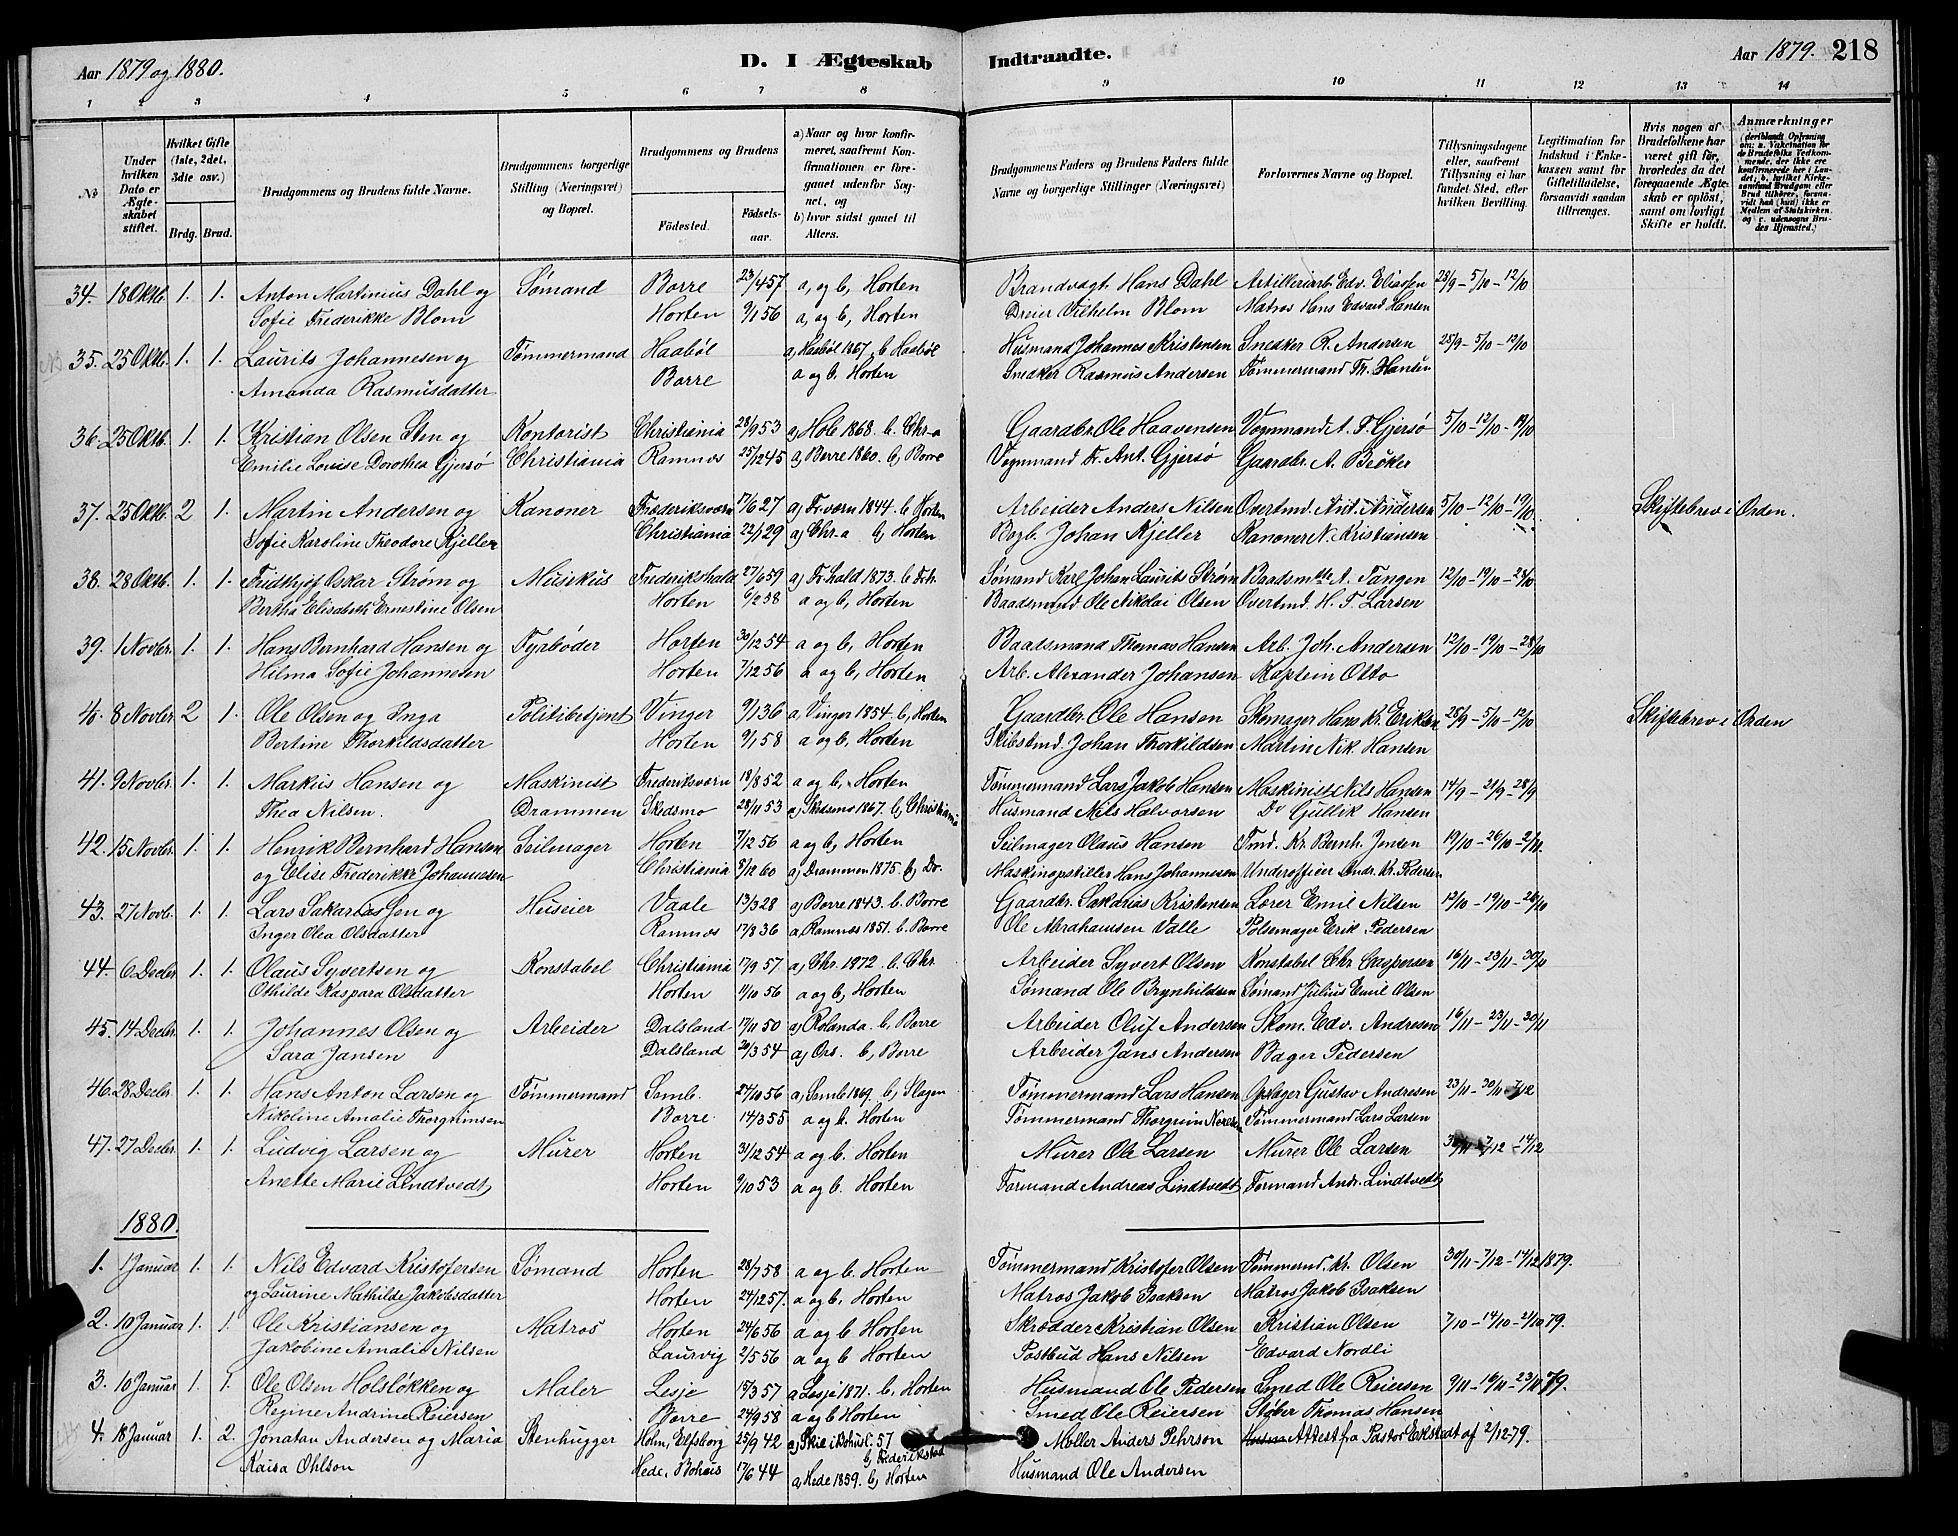 Aar 1879 og 1880.
D. I Ægteskab
Indtraadte.
Aar 1879. 218
1 2 3 4 5 6 7 8 9 10 11 12 13 14
No
Under hvilken Dato er Ægteskabet stiftet.
Hvilket Gifte (1ste, 2det, 3die osv.)
Brdg. Brud.
Brudgommens og Brudens fulde Navne.
Brudgommens borgerlige Stilling (Næringsvei) og Bopæl.
Brudgommens og Brudens
Fødested.
Fødselsaar.
a) Naar og hvor konfirmeret, saafremt Konfirmationen er foregaaet udenfor Sognet, og
b) hvor sidst gaaet til Alters.
Brudgommens Faders og Brudens Faders fulde Navne og borgerlige Stillinger (Næringsvei)
Forlovernes Navne og Bopæl.
Tillysningsdagene eller, saafremt Tillysning ei har fundet Sted, efter hvilken Bevilling.
Legitimation for Indskud i Enkekassen samt for Giftetilladelse, forsaavidt saadan tiltrænges.
Hvis nogen af Brudefolkene har været gift før, hvorledes da det foregaaende Ægteskab er opløst, samt om lovligt Skifte er holdt.
Anmærkninger (deriblandt Oplysning om: a. Vakcination for de Brudefolks Vedkommende, der ikke ere konfirmerede her i Landet, b. hvilket Kirkesamfund Brudgom eller Brud tilhører, forsaavidt han (hun) ikke er Medlem af Statskirken og c. udensogns Brudes Hjemsted.)
34. 18 Oktb. 1. 1. Anton Martinius Dahl og Sømand Borre 23/4 57 a, og b, Horten Brandvagt Hans Dahl Artilleriarb. Edv. Eliassen 28/9 - 5/10 - 12/10
Sofie Frederikke Blom Horten 9/1 56 a, og b, Horten Dreier Vilhelm Blom Matros Hans Edvard Hansen
35. 25 Oktb. 1. 1. Laurits Johannesen og Tømmermand Haabøl a, Haabøl 1867, b Haabøl Husmand Johannes Kristensen Snedker R. Andersen 28/9 - 5/10 - 12/10
Amanda Rasmusdatter Borre a og b. Horten Snedker Rasmus Andersen Tømmermand Th. Hansen
36. 25 Oktb. 1. 1. Kristian Olsen Sten og Kontorist Christiania 28/9 53 a, Hole 1868. b. Chr-a Gaardbr. Ole Haavensen Vognmand A. F. Gjersø 5/10 - 12/10 - 19/10
Emilie Louise Dorothea Gjersø Christiania Ramnes 25/12 45 a, Borre 1860. b, Borre Vognmand Fr. Ant. Gjersø Gaardbr. A. Becker
37. 25 Oktb. 2 1. Martin Andersen og Kanoner Fræderiksværn 17/6 27 a, Fr.værn 1844. b Horten Arbeider Anders Nilsen Overtmd. And. Andersen 5/10 - 12/10 - 19/10 Skiftebrev i Orden.
Sofie Karoline Theodore Kjeller Christiania 22/1 29 a, Chr-a b, Horten Bogb. Johan Kjeller Kanoner N. Kristiansen
38. 28 Oktb. 1. 1. Fridthjof Oskar Strøm og Musikus Frederikshald 27/6 59 a, Fr.hald 1873. b Frh. Sømand Karl Johan Laurits Strøm Baadsmth A. Tangen 12/10 - 19/10 - 26/10
Berthe Elisabeth Ernestine Olsen Horten 6/2 58 a og b, Horten Baadsmand Ole Nikolai Olsen Overtmd. H. F. Larsen
39. 1 Novbr. 1. 1. Hans Bernhard Hansen og Fyrbøder Horten 30/12 54 a og b, Horten Baadsmand Thomas Hansen Arb. Joh. Andersen 12/10 - 19/10 - 28/10
Hilma Sofie Johannesen Horten 7/12 56 a og b, Horten Arb. Alexander Johansen Kaptein Otto
40. 8 Novbr. 2 1. Ole Olsen og Inga Politibetjent Vinger 9/1 36 a, Vinger 1854. b, Horten Gaardbr. Ole Hansen Skomager Hans Kr. Eriksen 28/9 - 5/10 - 12/10 Skiftebrev i Orden
Bertine Thorkildsdatter Horten 9/1 58 a og b, Horten Skibstmd. Johan Thorkildsen Martin Nik. Hansen
41. 9 Novbr. 1. 1. Markus Hansen og Maskinist Frederiksværn 18/8 52 a og b, Horten Tømmermand Lars Jakob Hansen Maskinist Nils Hansen 14/9 - 21/9 - 28/9
Thea Nilsen. Drammen Skedsmo 28/11 53 a, Skedsmo 1867. b, Christiania Husmand Nils Halvorsen Do Gullik Hansen
42. 15 Novbr. 1. 1. Henrik Bernhard Hansen Seilmager Horten 7/12 56 a og b, Horten Seilmager Olaus Hansen Tmd. Kr. Bernh. Jensen 19/10 - 26/10 - 2/11
og Elise Frederikke Johannesen Christiania 8/12 60 a, Drammen 1875. b, Do. Maskinopstiller Hans Johannesen Underofficer Andr. Kr. Pedersen
43. 27 Novb. 1. 1. Lars Sakariassen og Huseier Vaale 13/3 28 a, Borre 1843. b. Borre Gaardbr. Sakarias Kristensen Lærer Emil Nilsen 12/10 - 19/10 - 26/10
Inger Olea Olsdatter Ramnes 17/8 36 a, Ramnes 1851. b. Borre Ole Abrahamsen Valle Pølsemager Erik Pedersen
44. 6 Decbr. 1. 1. Olaus Syvertsen og Konstabel Christiania 17/9 57 a, Chr. 1872. b. Chr. Arbeider Syvert Olsen Konstabel Chr. Caspersen 16/11 - 23/11 - 30/11
Othilde Kaspara Olsdatter Horten 11/10 56 a og b, Horten Sømand Ole Brynhildsen Sømand Julius Emil Olsen
45. 14 Decbr. 1. 1. Johannes Olsen og Arbeider Dalsland 17/11 50 a, Rolanda. b, Borre Arbeider Oluf Andersen Skom. Edv. Andresen 16/11 - 23/11 - 30/11
Sara Jansen Dalsland 20/3 54 a, Ørs. b, Borre Arbeider Jans Andersen Bager Pedersen
46. 28 Decbr. 1. 1. Hans Anton Larsen og Tømmermand Semb. 24/10 56 a, Semb 1869. b, Slagen Tømmermand Lars Hansen Opslager Gustav Andresen 23/11 - 30/11 - 7/12
Nikoline Amalie Thorgrimsen Borre 14/3 55 a og b. Horten Tømmermand Thorgrim Tømmermand Lars Larsen
47. 27 Decbr. 1. 1. Ludvig Larsen og Murer Horten 31/12 54 a og b. Horten Murer Ole Larsen Murer Ole Larsen 30/11 7/12 - 14/12
Anette Marie Lindtvedt Horten 9/10 53 a og b. Horten Formand Andreas Lindtvedt Formand Andr. Lindtvedt
1880.
1. 1 Januar 1. 1. Nils Edvard Kristofersen Sømand Horten 28/7 58 a og b. Horten Tømmermand Kristofer Olsen Tømmermd. Kr. Olsen 30/11 - 7/12 - 14/12 1879.
og Laurine Mathilde Jakobsdatter Horten 24/12 57. a og b, Horten Matros Jakob Isaksen Matros Jakob Isaksen
2. 10 Januar 1. 1. Ole Kristiansen og Matros Horten 24/6 56 a og b Horten Skrædder Kristian Olsen Kristian Olsen 7/10 - 14/10 - 21/10 79.
Jakobine Amalie Nilsen Laurvig 2/5 56 a og b Horten Postbud Hans Nilsen Edvard Nordli
3. 16 Januar 1. 1. Ole Olsen Holsløkken og Maler Lesje 15/3 57 a Lesje 1871. b, Horten Husmand Ole Pedersen Smed Ole Reiersen 9/11 - 16/11 - 23/11 79.
Regine Andrine Reiersen Borre 24/9 58 a og b Horten Smed Ole Reiersen Støber Thomas Hansen
4. 18 Januar 1. 2. Jonatan Andersen og Maria Stenhugger Holm, Elfsborg 25/9 42 a, Skie i Bohusl. 57 Møller Anders Pehrson Attest fra Pastor Ekstedt af 2/12 79.
b, Frederikstad
Kaisa Ohlson Hede, Bohus 17/6 44 a, Hede 1859. b, Horten Husmand Ole Andersen